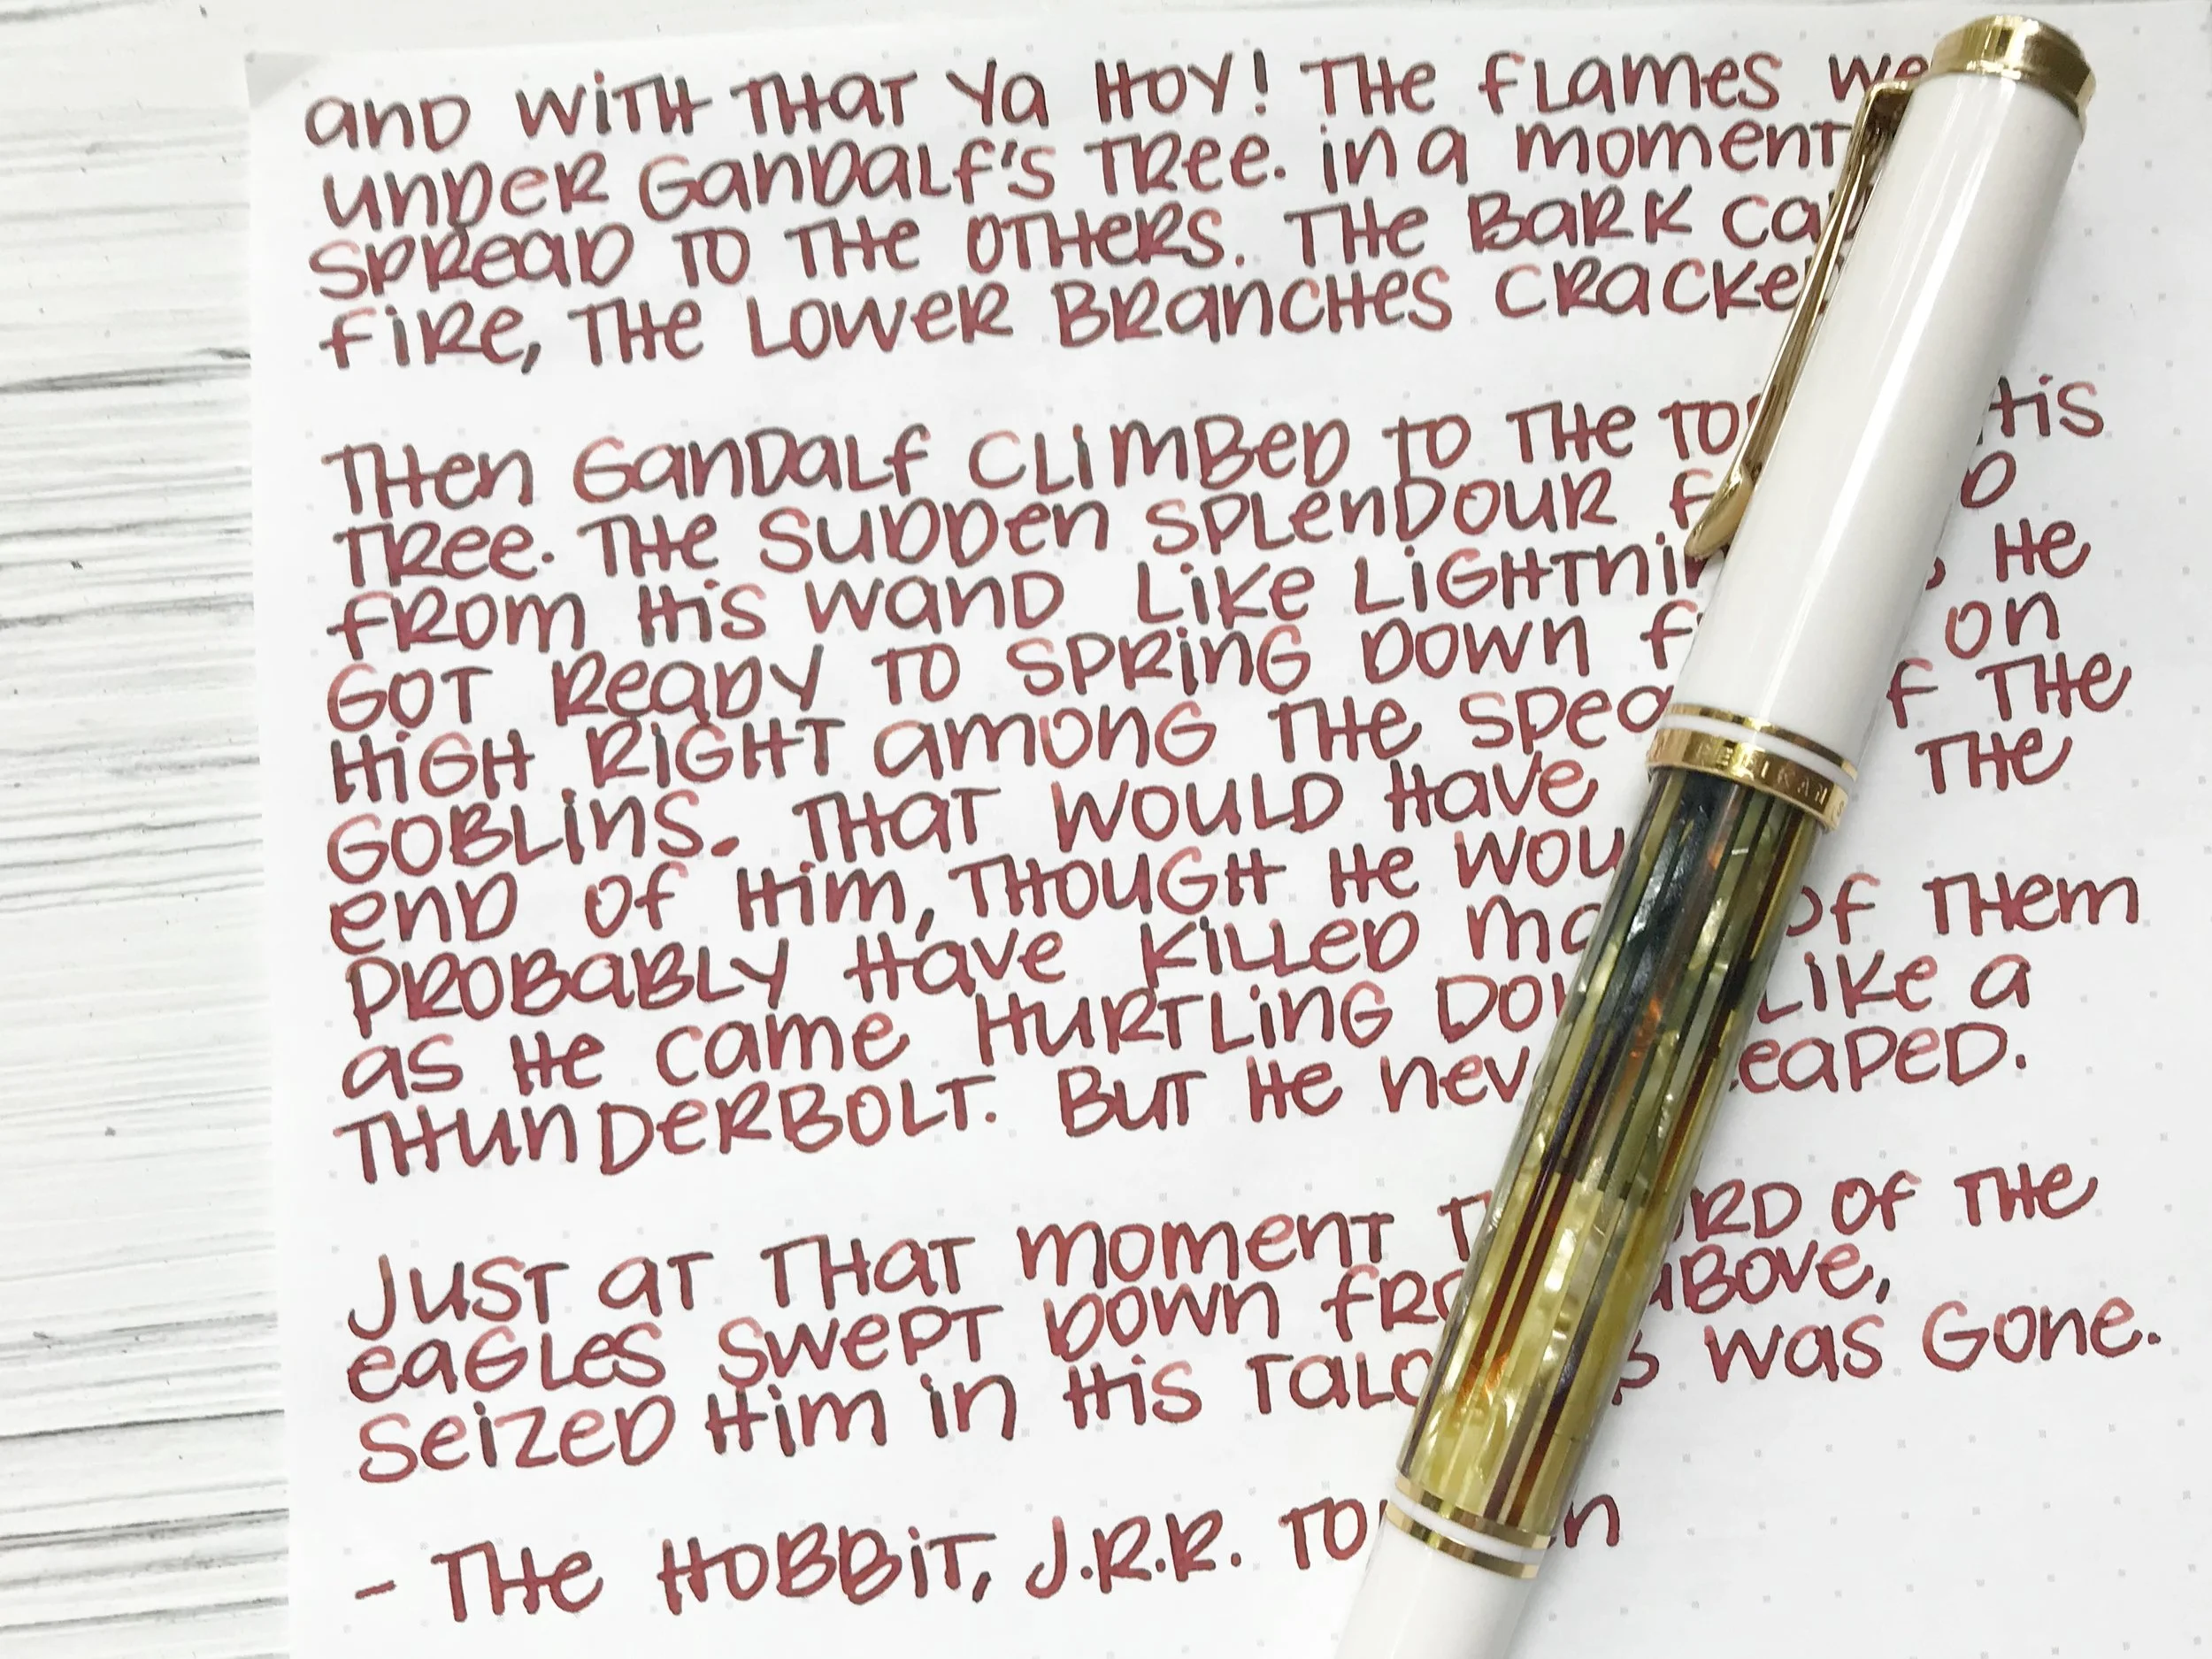 and with that Ya hoy! The flames
under Gandalf's tree. in a moment
spread to the others. The bark
fire, the lower branches
Then Gandalf climbed to the his
tree. The sudden splendour
from his wand like he
got ready to spring down on
high right among the the
goblins. That would have the
end of him, though he
probably have killed of them
as he came hurtling like a
thunderbolt. But he
Just at that moment of the
eagles swept down above,
seized him in his was gone.
- The Hobbit, J.R.R.
PELIKAN